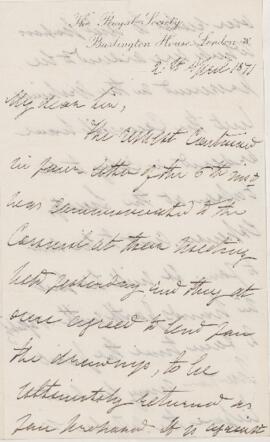 The Royal Society
Burlington House, London. W.
21st April 1871
My dear Sir,
The request contained
in your letter of the 5th inst
was communicated to the
Council at their meeting
held yesterday and they at
once agreed to lend you
the drawings, to be
ultimately returned as
you proposed. It is